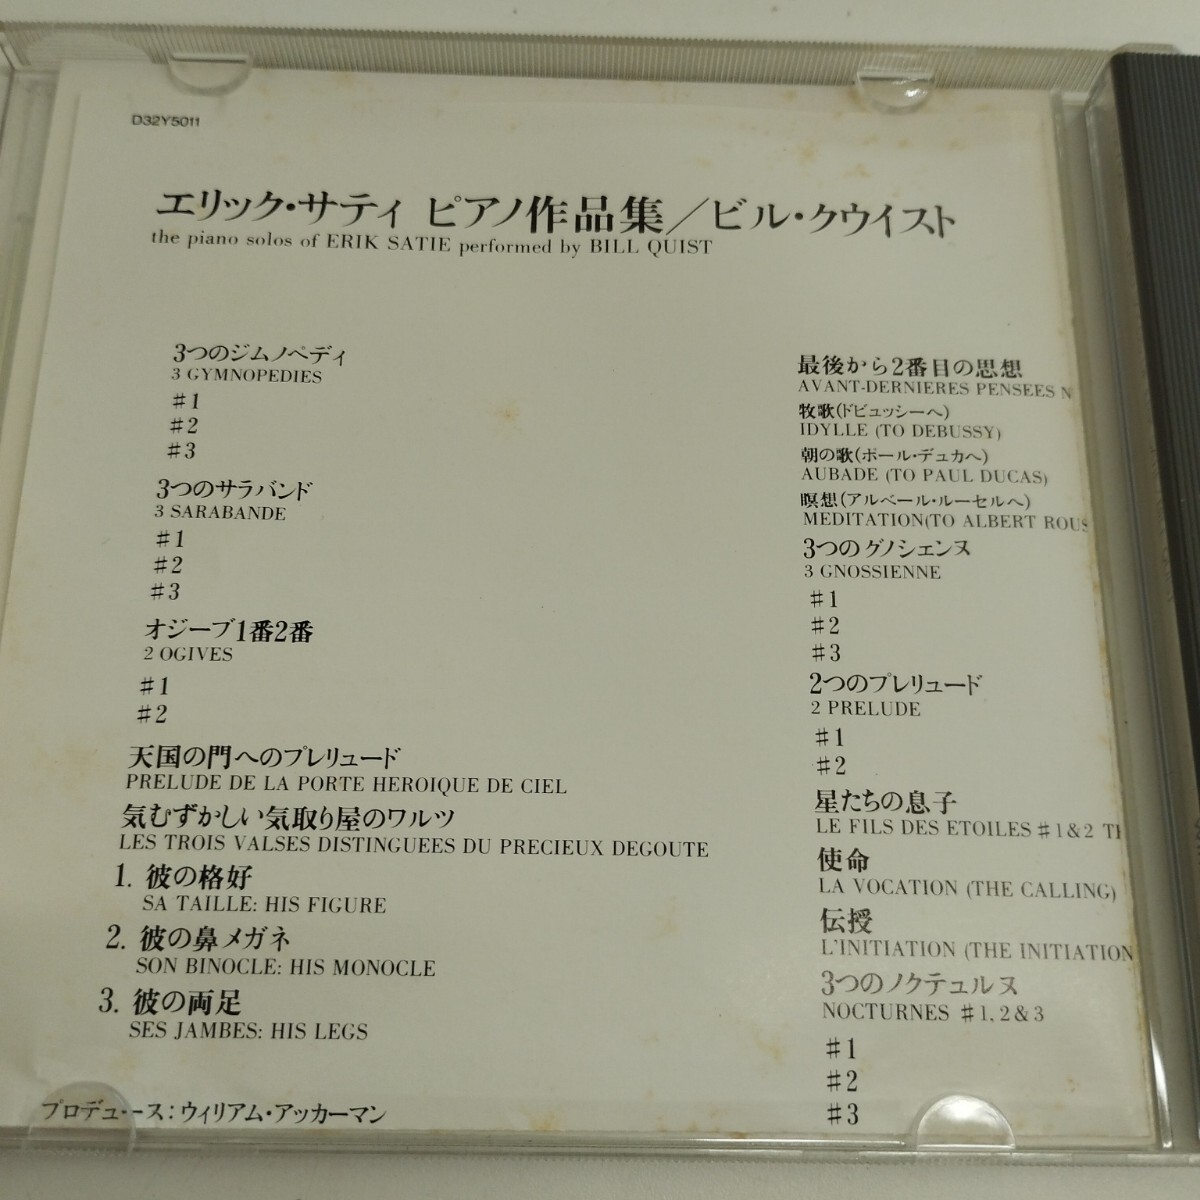 D32Y5011
エリック・サティ ピアノ作品集／ビル・クウイスト
the piano solos of ERIK SATIE performed by BILL QUIST
3つのジムノペディ
3 GYMNOPEDIES
♯1
♯2
♯3
3つのサラバンド
3 SARABANDE
♯1
♯2
♯3
オジーブ1番2番
2 OGIVES
♯1
♯2
天国の門へのプレリュード
PRELUDE DE LA PORTE HEROIQUE DE CIEL
気むずかしい気取り屋のワルツ
LES TROIS VALSES DISTINGUEES DU PRECIEUX DEGOUTE
1. 彼の格好
SA TAILLE: HIS FIGURE
2. 彼の鼻メガネ
SON BINOCLE: HIS MONOCLE
3. 彼の両足
SES JAMBES: HIS LEGS
プロデュース：ウィリアム・アッカーマン
最後から2番目の思想
AVANT-DERNIERES PENSEES N
牧歌(ドビュッシーへ)
IDYLLE (TO DEBUSSY)
朝の歌(ポール・デュカへ)
AUBADE (TO PAUL DUCAS)
瞑想(アルベール・ルーセルへ)
MEDITATION(TO ALBERT ROUS
3つのグノシェンヌ
3 GNOSSIENNE
♯1
♯2
♯3
2つのプレリュード
2 PRELUDE
♯1
♯2
星たちの息子
LE FILS DES ETOILES ♯1&2 TH
使命
LA VOCATION (THE CALLING)
伝授
L'INITIATION (THE INITIATION
3つのノクテュルヌ
NOCTURNES ♯1, 2 & 3
♯1
♯2
♯3